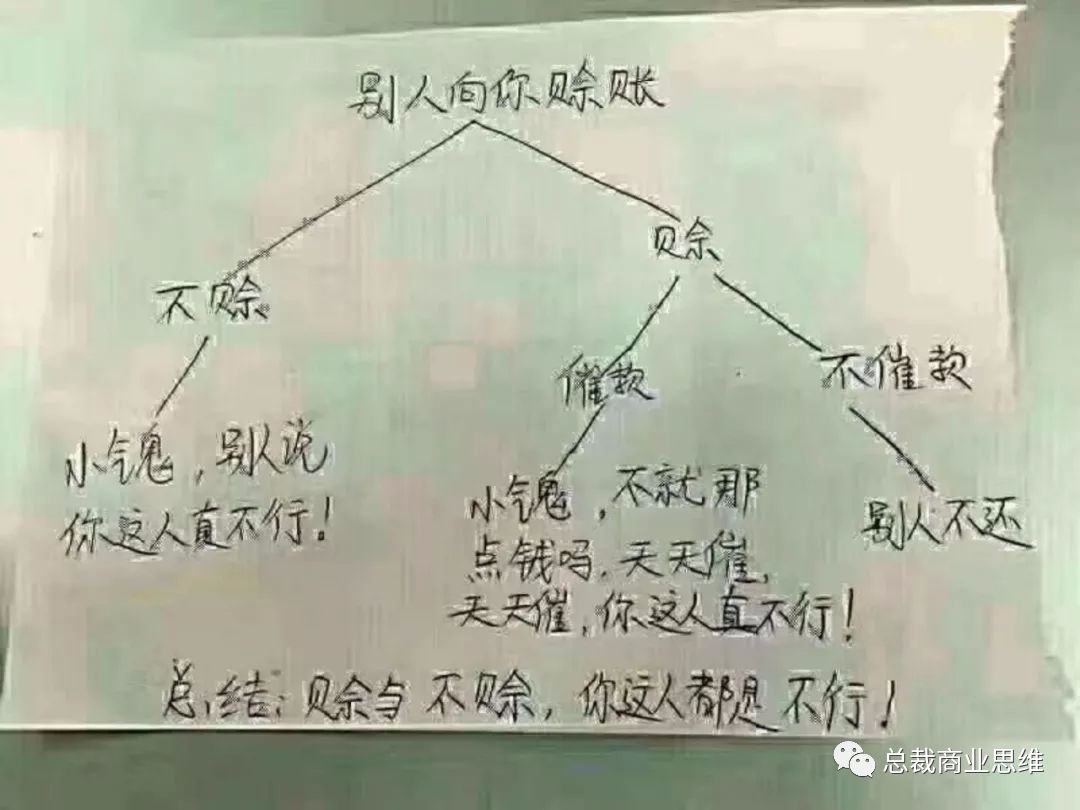 别人向你赊账
赊
不赊
催款
不催款
小气鬼，别人说
你这人真不行！
小气鬼，不就那
点钱吗，天天催，
天天催，你这人真不行！
别人不还
总结：赊与不赊，你这人都是不行！
总裁商业思维